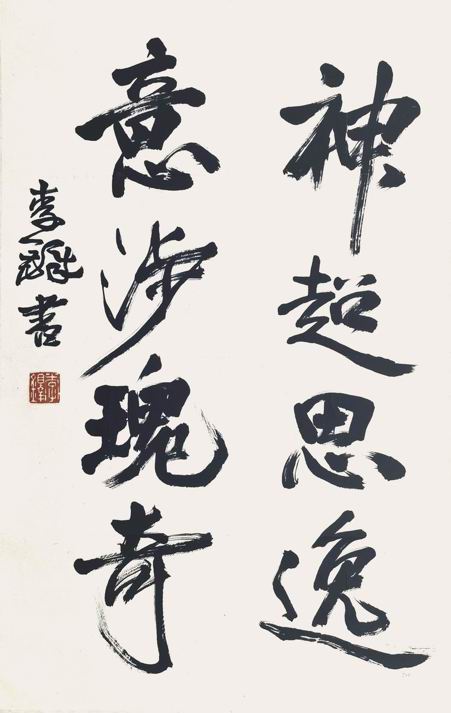 神超思逸
意涉瑰奇
李 書